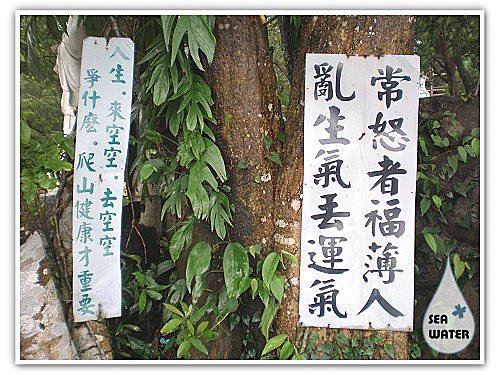 人生．來空空．去空空
爭什麼．爬山健康才重要
常怒者福薄人
亂生氣丟運氣
SEA
WATER